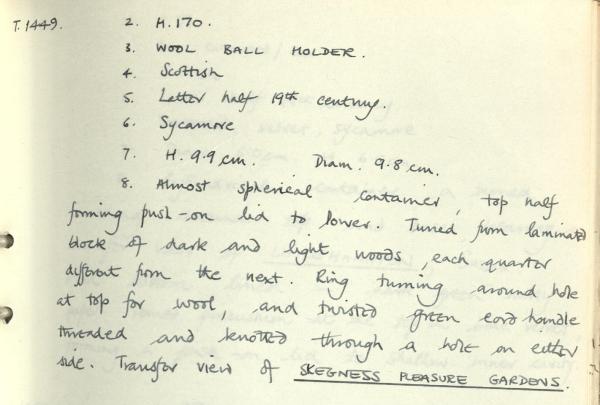 T.1449. 2. H.170.
3. WOOL BALL HOLDER.
4. Scottish
5. Latter half 19th century.
6. Sycamore
7. H. 9.9 cm. Diam. 9.8 cm.
8. Almost spherical container, top half
forming push-on lid to lower. Turned from laminated
block of dark and light woods, each quarter
different from the next. Ring turning around hole
at top for wool, and twisted green cord handle
threaded and knotted through a hole on either
side. Transfer view of SKEGNESS PLEASURE GARDENS.